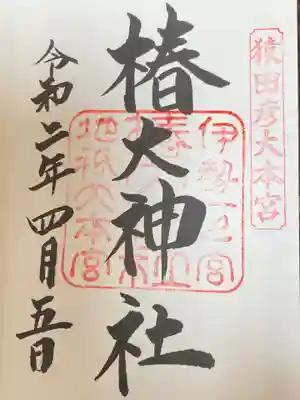 猿田彦大本宮
伊勢一之宮
椿大神社
地祇大本宮
令和二年四月五日